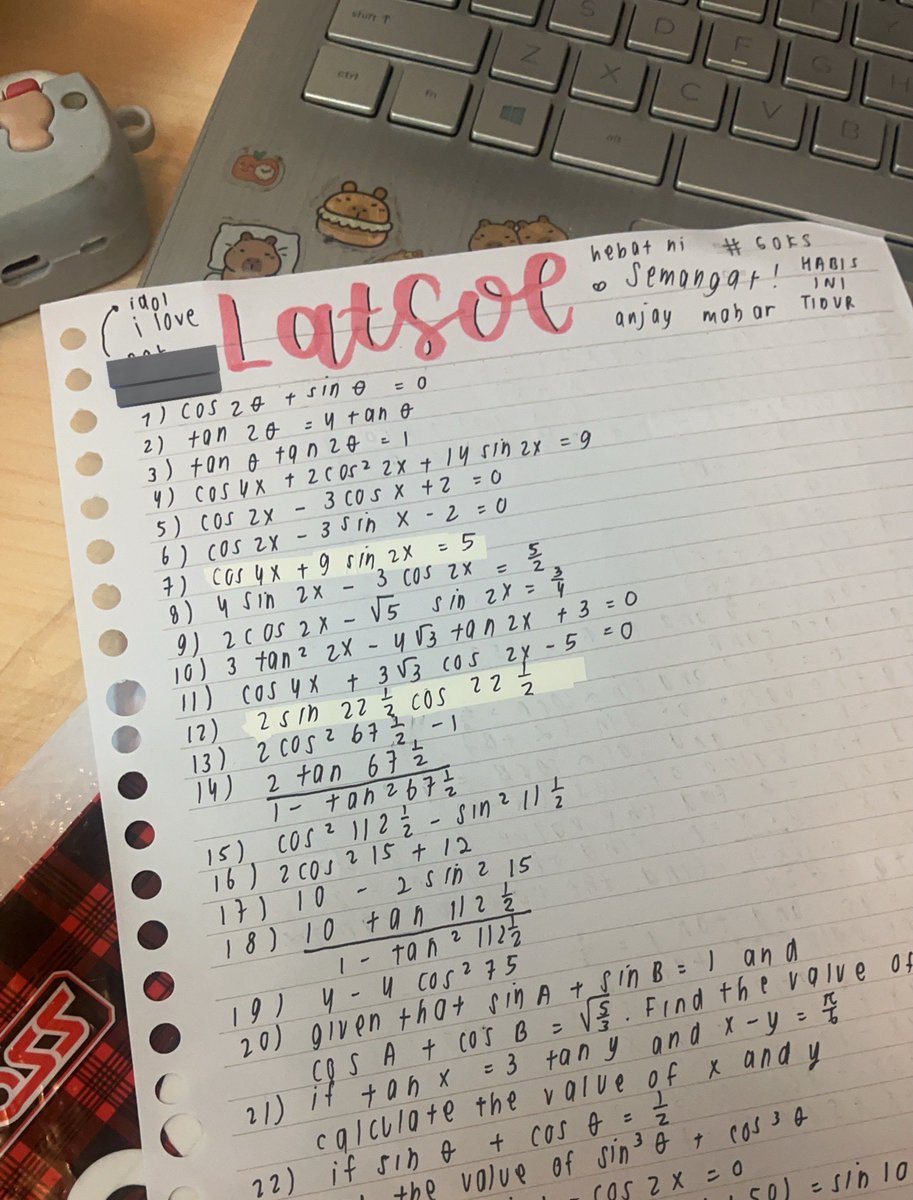 shift ↑
S
D
F
G
H
ctrl
fn
Z
X
C
V
B
alt
idol
i love
Latsol
hebat ni # SOKS
Semangat! HABIS
INI
anjay mabar TIDUR
1) cos 2θ + sin θ = 0
2) tan 2θ = 4 tan θ
3) tan θ tan 2θ = 1
4) cos 4x + 2cos² 2x + 14 sin 2x = 9
5) cos 2x - 3 cos x + 2 = 0
6) cos 2x - 3 sin x - 2 = 0
7) cos 4x + 9 sin 2x = 5
8) 4 sin 2x - 3 cos 2x = 5/2
9) 2 cos 2x - √5 sin 2x = 3/4
10) 3 tan² 2x - 4√3 tan 2x + 3 = 0
11) cos 4x + 3√3 cos 2x - 5 = 0
12) 2 sin 22 1/2 cos 22 1/2
13) 2 cos² 67 1/2 - 1
14) 2 tan 67 1/2
1 - tan² 67 1/2
15) cos² 112 1/2 - sin² 11 1/2
16) 2cos² 15 + 12
17) 10 - 2 sin² 15
18) 10 tan 112 1/2
1 - tan² 112 1/2
19) 4 - 4 cos² 75
20) given that sin A + sin B = 1 and
cos A + cos B = √5/3. Find the value of
21) if tan x = 3 tan y and x - y = π/6
calculate the value of x and y
22) if sin θ + cos θ = 1/2
the value of sin³ θ + cos³ θ
- cos 2x = 0
50) = sin 10
oss